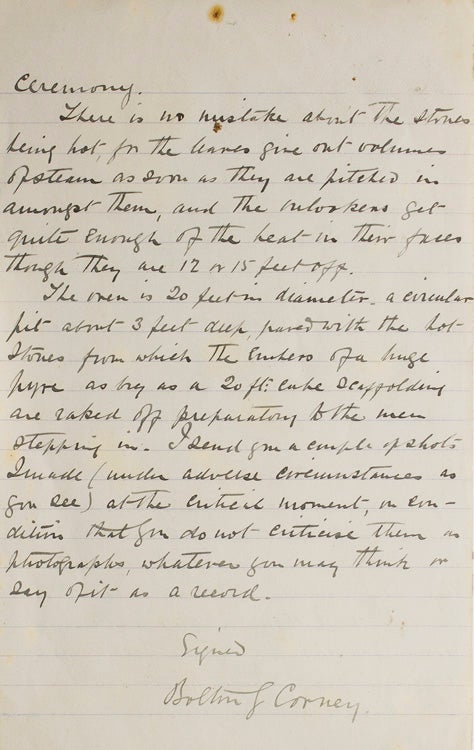 Ceremony.
There is no mistake about the stones
being hot, for the leaves give out volumes
of steam as soon as they are pitched in
amongst them, and the onlookers get
quite enough of the heat in their faces
though they are 12 or 15 feet off.
The oven is 20 feet in diameter - a circular
pit about 3 feet deep, paved with the hot
stones from which the embers of a huge
pyre as big as a 20 ft: cube scaffolding
are raked off preparatory to the men
stepping in. I send you a couple of shots
I made (under adverse circumstances as
you see) at the critical moment, on con-
dition that you do not criticise them as
photographs, whatever you may think or
say of it as a record.
Signed
Bolton G Corney.